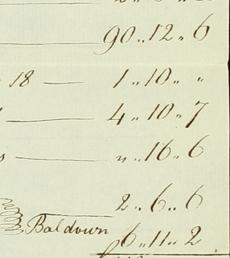 90 " 12 " 6
18 — 1 " 10 " "
4 " 10 " 7
" 16 " 6
2 " 6 " 6
Baldwin 6 " 11 " 2